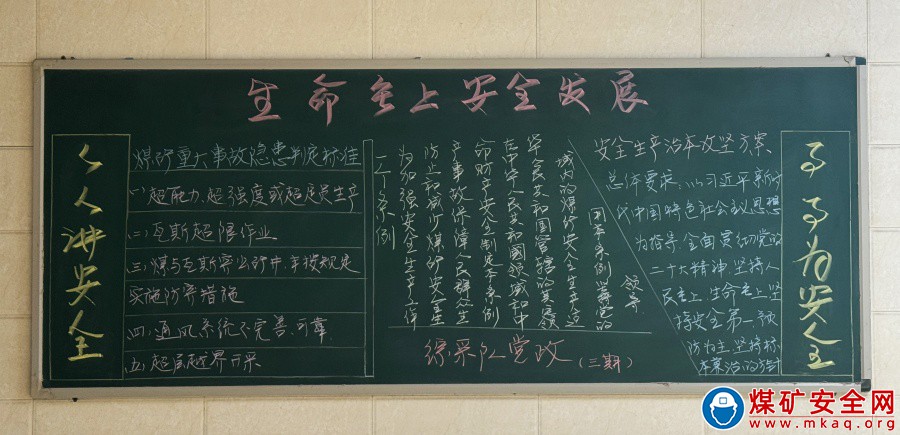 生命至上 安全发展
人人讲安全
煤矿重大事故隐患判定标准
(一)超能力、超强度或超定员生产
(二)瓦斯超限作业
(三)煤与瓦斯突出矿井,未按规定
实施防突措施
(四)通风系统不完善、可靠
(五)超层越界开采
(一)条例
为加强安全生产工作
防止和减少煤矿安全生
产事故保障人民群众生
命财产安全制定本条例
在中华人民共和国领域和中
华人民共和国管辖的其他
域内的煤矿安全生产适
用本条例
党的
领导
综采队党政
(三期)
安全生产治本攻坚方案
总体要求:以习近平新时
代中国特色社会主义思想
为指导,全面贯彻党的
二十大精神,坚持人
民至上、生命至上,坚
持安全第一、预
防为主,坚持标
本兼治的方针
事事为安全
煤矿安全网
www.mkaq.org